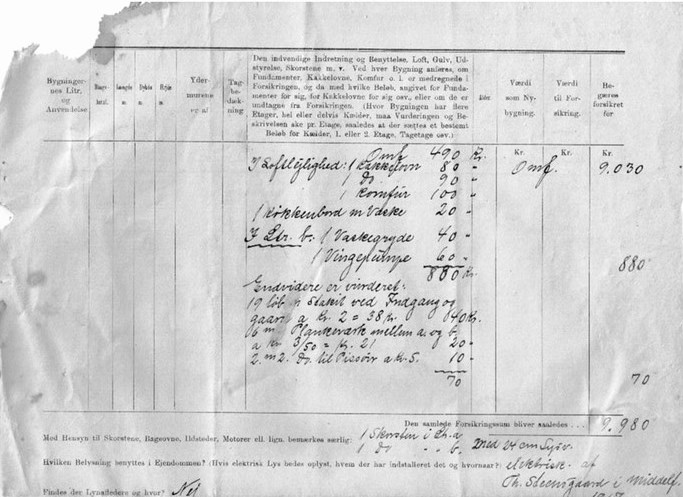 Bygninger-
nes Litr.
og
Anvendelse
Yder-
murene
og af
Tag-
bedæk-
ning
Den indvendige Indretning og Benyttelse, Loft, Gulv, Ud-
styrelse, Skorstene m. v. Ved hver Bygning anføres, om
Fundamenter, Kakkelovne, Komfur o. l. er medregnede i
Forsikringen, og da med hvilke Beløb, angivet for Funda-
menter for sig, for Kakkelovne for sig osv., eller om de er
undtagne fra Forsikringen. (Hvor Bygningen har flere
Etager, hel eller delvis Kælder, maa Vurderingen og Be-
skrivelsen ske pr. Etage, saaledes at der sættes et bestemt
Beløb for Kælder, 1. eller 2. Etage, Tagetage osv.)
Værdi
som Ny-
bygning.
Værdi
til For-
sikring.
Be-
gæres
forsikret
for
Kr. Kr. Kr.
Omf. 490 Kr. Omf. 9.030
I Loftlejlighed: 1 Kakkelovn 80 "
1 do 90 "
1 Komfur 100 "
1 Køkkenbord m Vaske 20 "
I Ltr. b: 1 Vaskegryde 40 "
1 Vingepumpe 60 "
880 Kr. 880
Endvidere er vurderet:
19 løb. Stakit ved Indgang og
gaard a Kr. 2 = 38 Kr. 40 Kr.
6 m Plankeværk mellem a og b
a Kr 3/50 = Kr. 21 20 "
2 m2. do. til Pissoir a Kr. 5. 10 "
70 70
Den samlede Forsikringssum bliver saaledes 9.980
Med Hensyn til Skorstene, Bageovne, Ildsteder, Motorer ell. lign. bemærkes særlig: 1 Skorsten i Ltr. a
1 do " " b. med
Hvilken Belysning benyttes i Ejendommen? (Hvis elektrisk Lys bedes oplyst, hvem der har installeret det og hvornaar?) elektrisk af
Ch. Steensgaard i Middelf.
Findes der Lynafledere og hvor? Nej